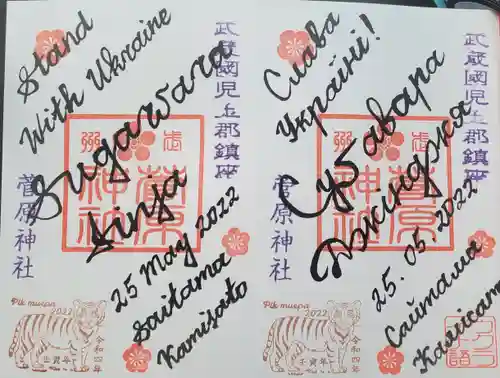 Stand
With Ukraine
武蔵國児玉郡鎮座
Sugawara
Jinja
菅原神社
25 May 2022
Saitama
Kamisato
Рік тигра
2022
令和四年
壬寅年
Слава
Україні!
武蔵國児玉郡鎮座
Сугавара
Джінджя
菅原神社
25.05.2022
Сайтама
Рік тигра
2022
令和四年
壬寅年